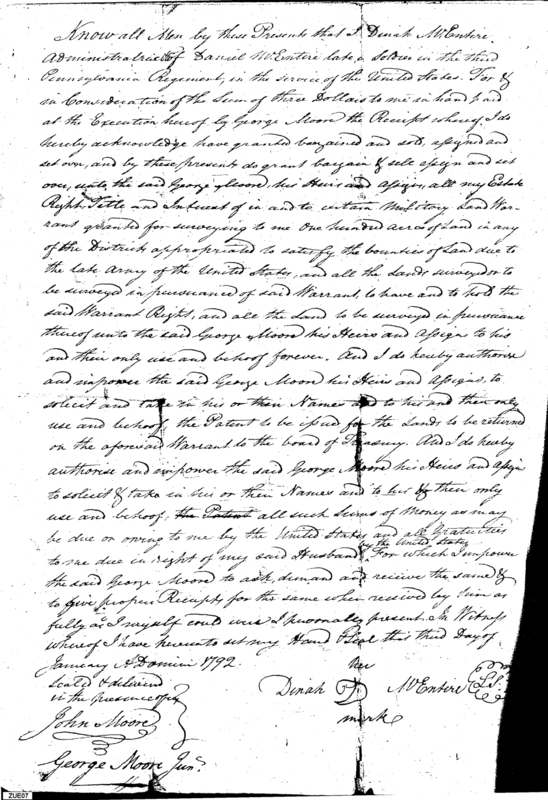 Know all Men by these Presents that I Dinah McEntire
Administratrix of Daniel McEntire late a Soldier in the third
Pennsylvania Regiment, in the service of the United States. For &
in Consideration of the Sum of three Dollars to me in hand paid
at the Execution hereof by George Moore the Receipt whereof I do
hereby acknowledge have granted bargained and sold, assigned and
set over, and by these presents do grant bargain & sell assign and set
over, unto the said George Moore, his Heirs and Assigns, all my Estate
Right, Title and Interest of in and to certain Military Land War-
rant granted for surveying to me One hundred acres of Land in any
of the Districts appropriated to satisfy the bounties of Land due to
the late Army of the United States, and all the Lands surveyed or to
be surveyed in pursuance of said Warrant, to have and to hold the
said Warrant Right, and all the Land to be surveyed in pursuance
thereof unto the said George Moore his Heirs and Assigns to his
and their only use and behoof forever. And I do hereby authorise
and impower the said George Moore his Heirs and Assigns, to
solicit and take in his or their Names and to his and their only
use and behoof, the Patent to be issued for the Lands to be returned
on the aforesaid Warrant to the board of Treasury. And I do hereby
authorise and impower the said George Moore his Heirs and Assigns
to solicit & take in his or their Names and to his & their only
use and behoof, the Patent all such Sums of Money as may
be due or owing to me by the United States and all Gratuities
by the United States
to me due in right of my said Husband, For which I impower
the said George Moore to ask, demand and receive the same &
to give proper Receipts for the same when received by him as
fully as I myself could were I personally present. In Witness
whereof I have hereunto set my Hand & Seal this third Day of
January A Domini 1792.
her
Seal'd & delivered
in the presence of
Dinah McEntire L.S.
mark
John Moore
George Moore Junr.
ZUE07